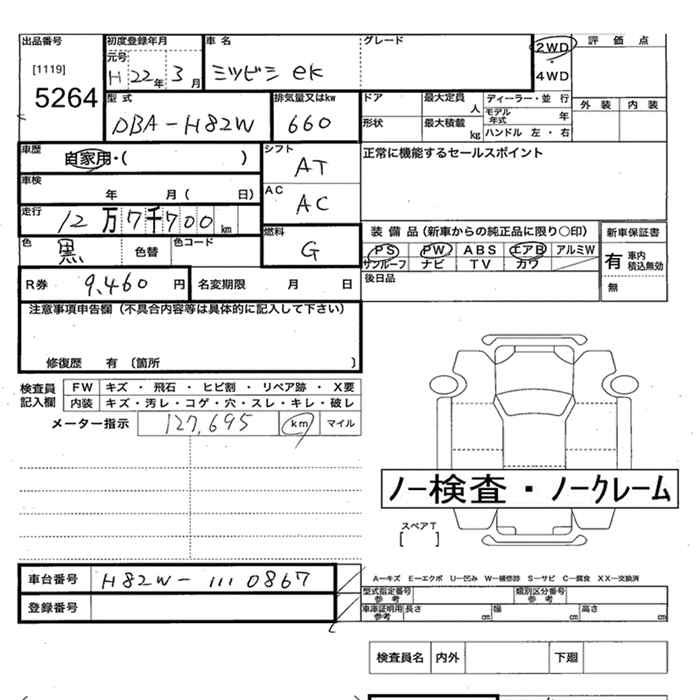 出品番号 初度登録年月 車名 グレード 評価点
[1119] 元号 2WD
5264 H 22年 3月 ミツビシ ek 4WD
外装 内装
型式 排気量又はkw ドア 最大定員 人 ディーラー・並行
DBA-H82W 660 形状 最大積載 kg モデル年式 年
ハンドル 左・右
車歴 自家用・( ) シフト AT 正常に機能するセールスポイント
車検 年 月( 日) AC AC
走行 12万7千700 km 燃料 G 装備品(新車からの純正品に限り○印) 新車保証書
色 黒 色替 色コード PS PW ABS エアB アルミW 有 車内積込無効
サンルーフ ナビ TV カワ
R券 9,460円 名変期限 月 日 後日品 無
注意事項申告欄(不具合内容等は具体的に記入して下さい)
修復歴 有(箇所 )
検査員記入欄 FW キズ・飛石・ヒビ割・リペア跡・X要
内装 キズ・汚レ・コゲ・穴・スレ・キレ・破レ
メーター指示 127,695 km マイル
ノー検査・ノークレーム
スペアT
[ ]
車台番号 H82W-1110867 A-キズ E-エクボ U-凹み W-補修跡 S-サビ C-腐食 XX-交換済
型式指定番号参考 類別区分番号参考
登録番号 車庫証明用参考 長さ cm 幅 cm 高さ cm
検査員名 内外 下廻